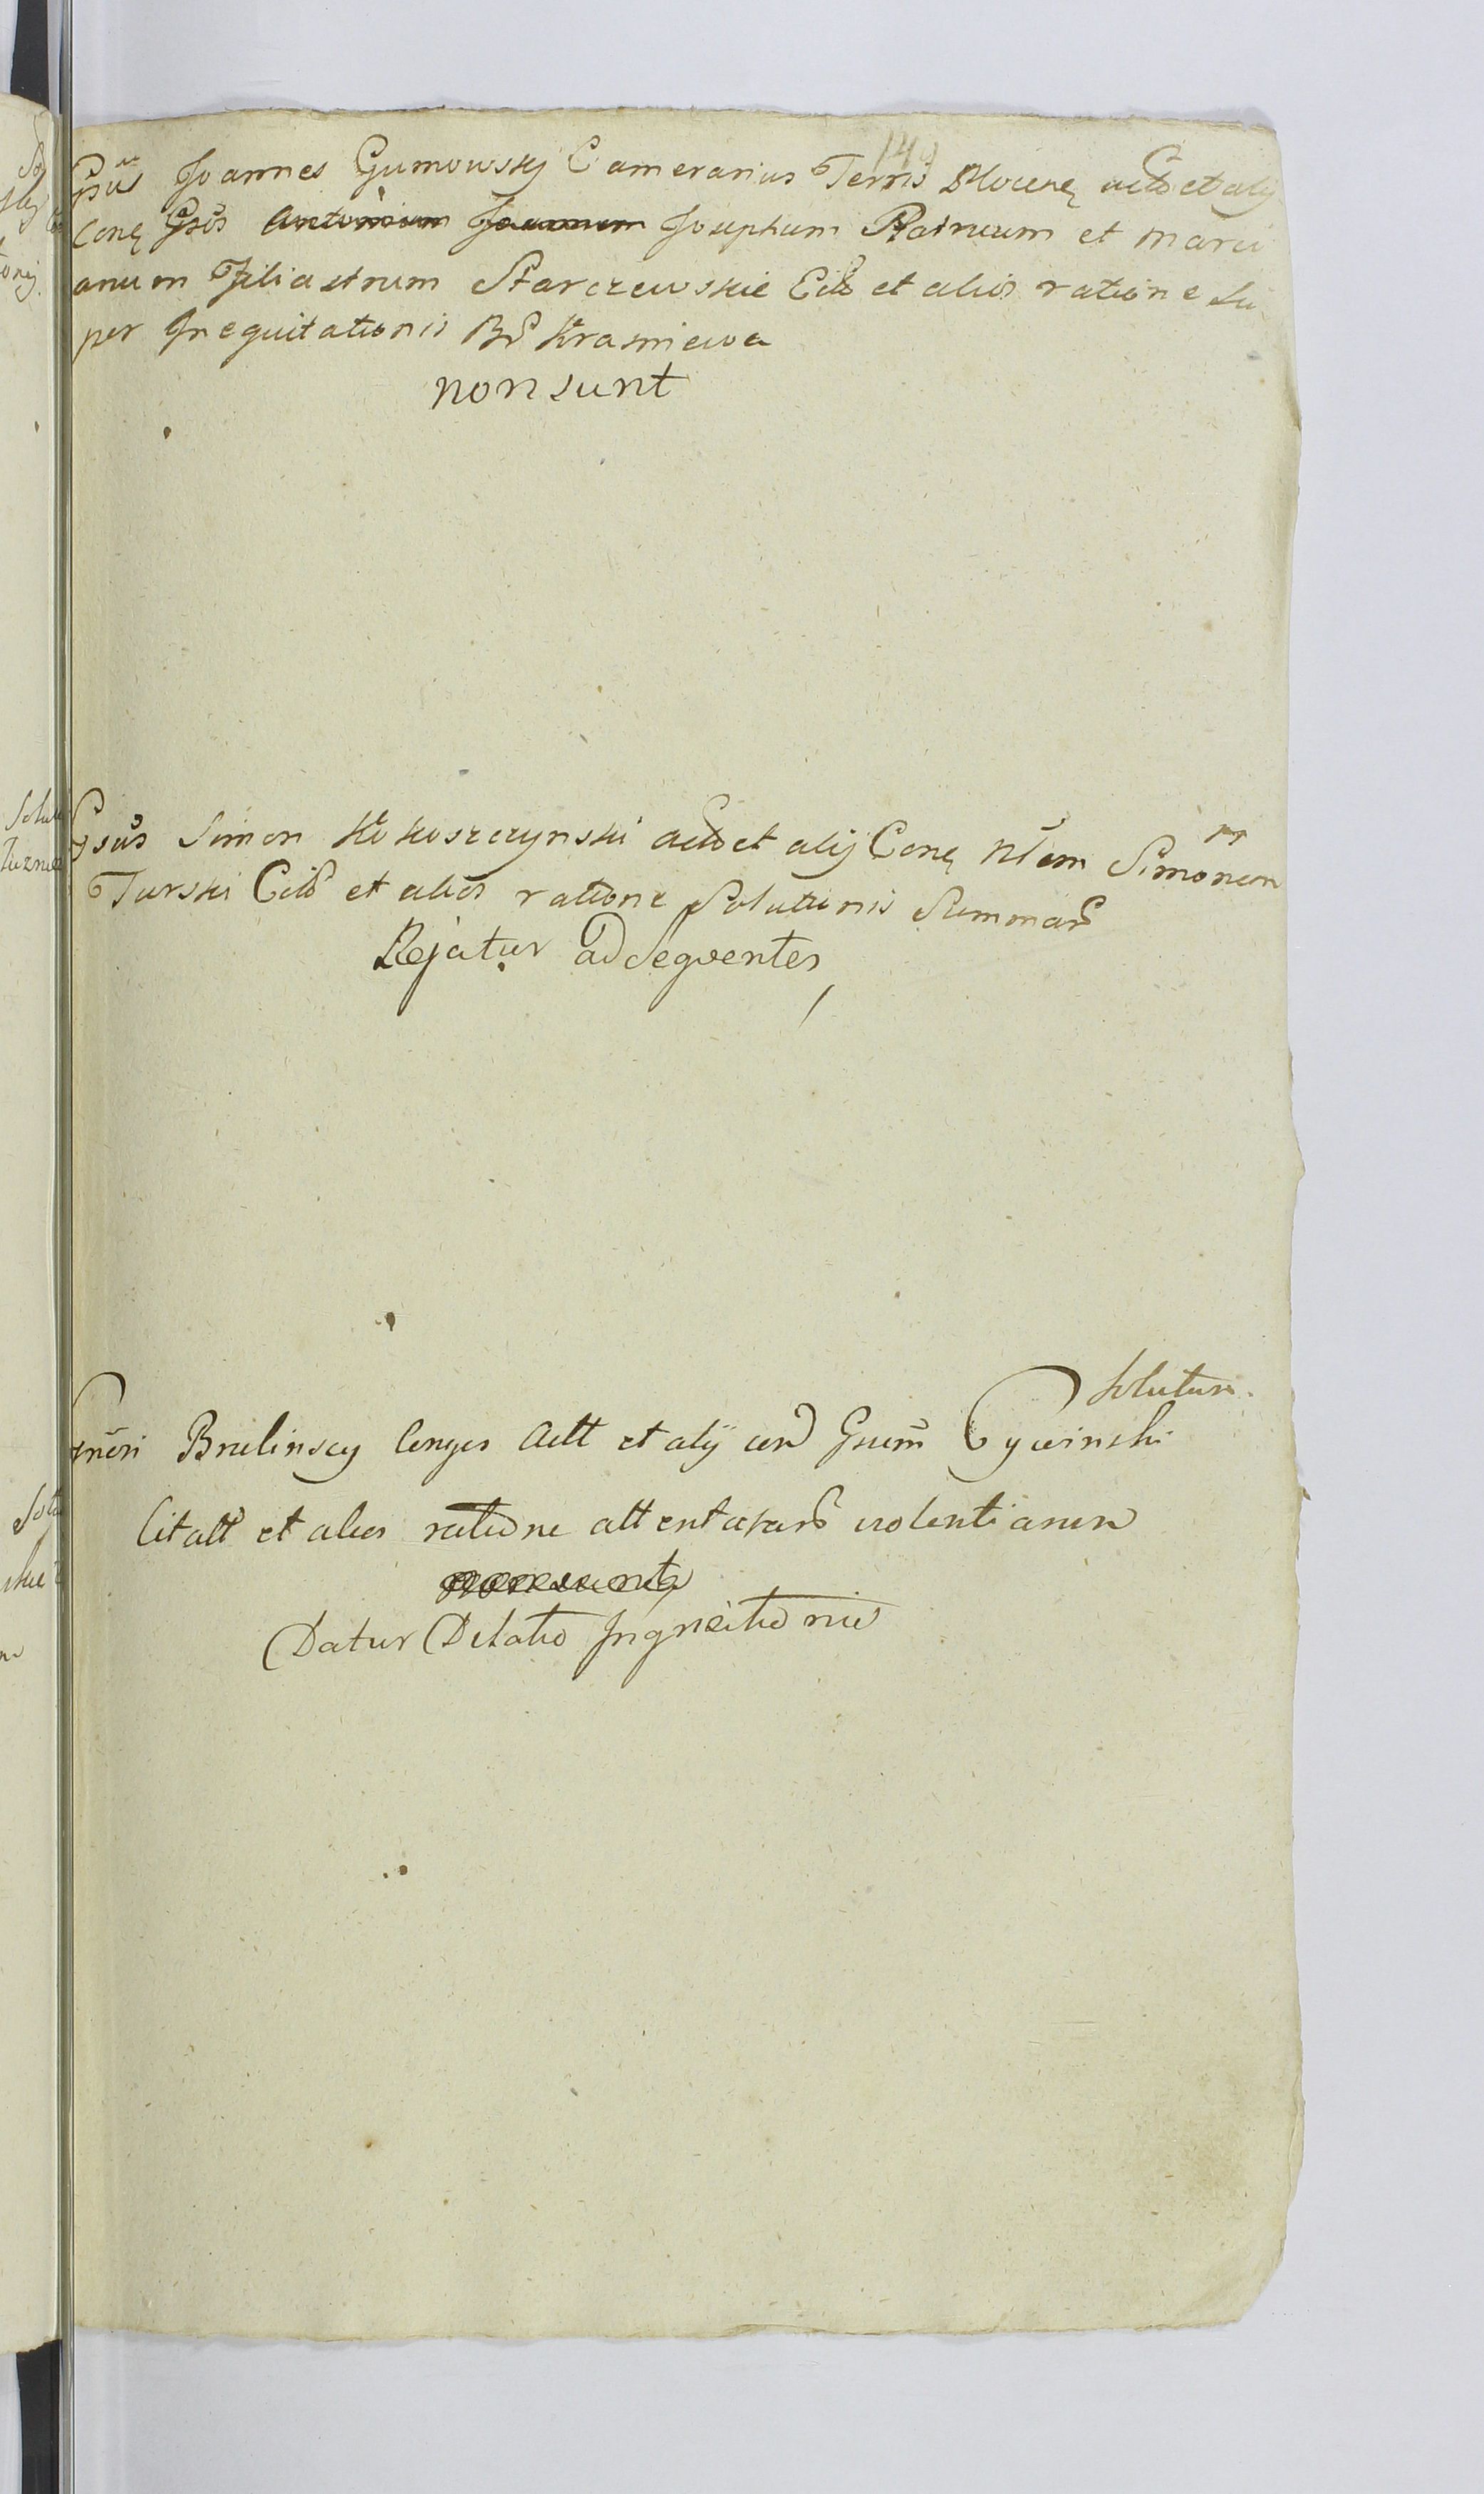 149
Gsus Joannes Gumowskj Camerarius Terris Plocen actor et alij
Conę Gsos Antonium Joannem Josephum Patruum et Marci
anum Filiastrum Starczewskie Citt et alios ratione Su
per Inequitationis Br Krasniewa
non sunt
Gsus Simon Kokoszczynski actor et alij Conę Nlem Simonem
Turski Citt et alios ratione Solutionis Summar
Rejatur ad Seqventes
Solutum
Gneri Brulinscy Conges Actt et alij con Gsum Cywinski
Citatt et alios ratione attentatar violentiarum
non sunt
Datur Dilatio Inqnsitionis